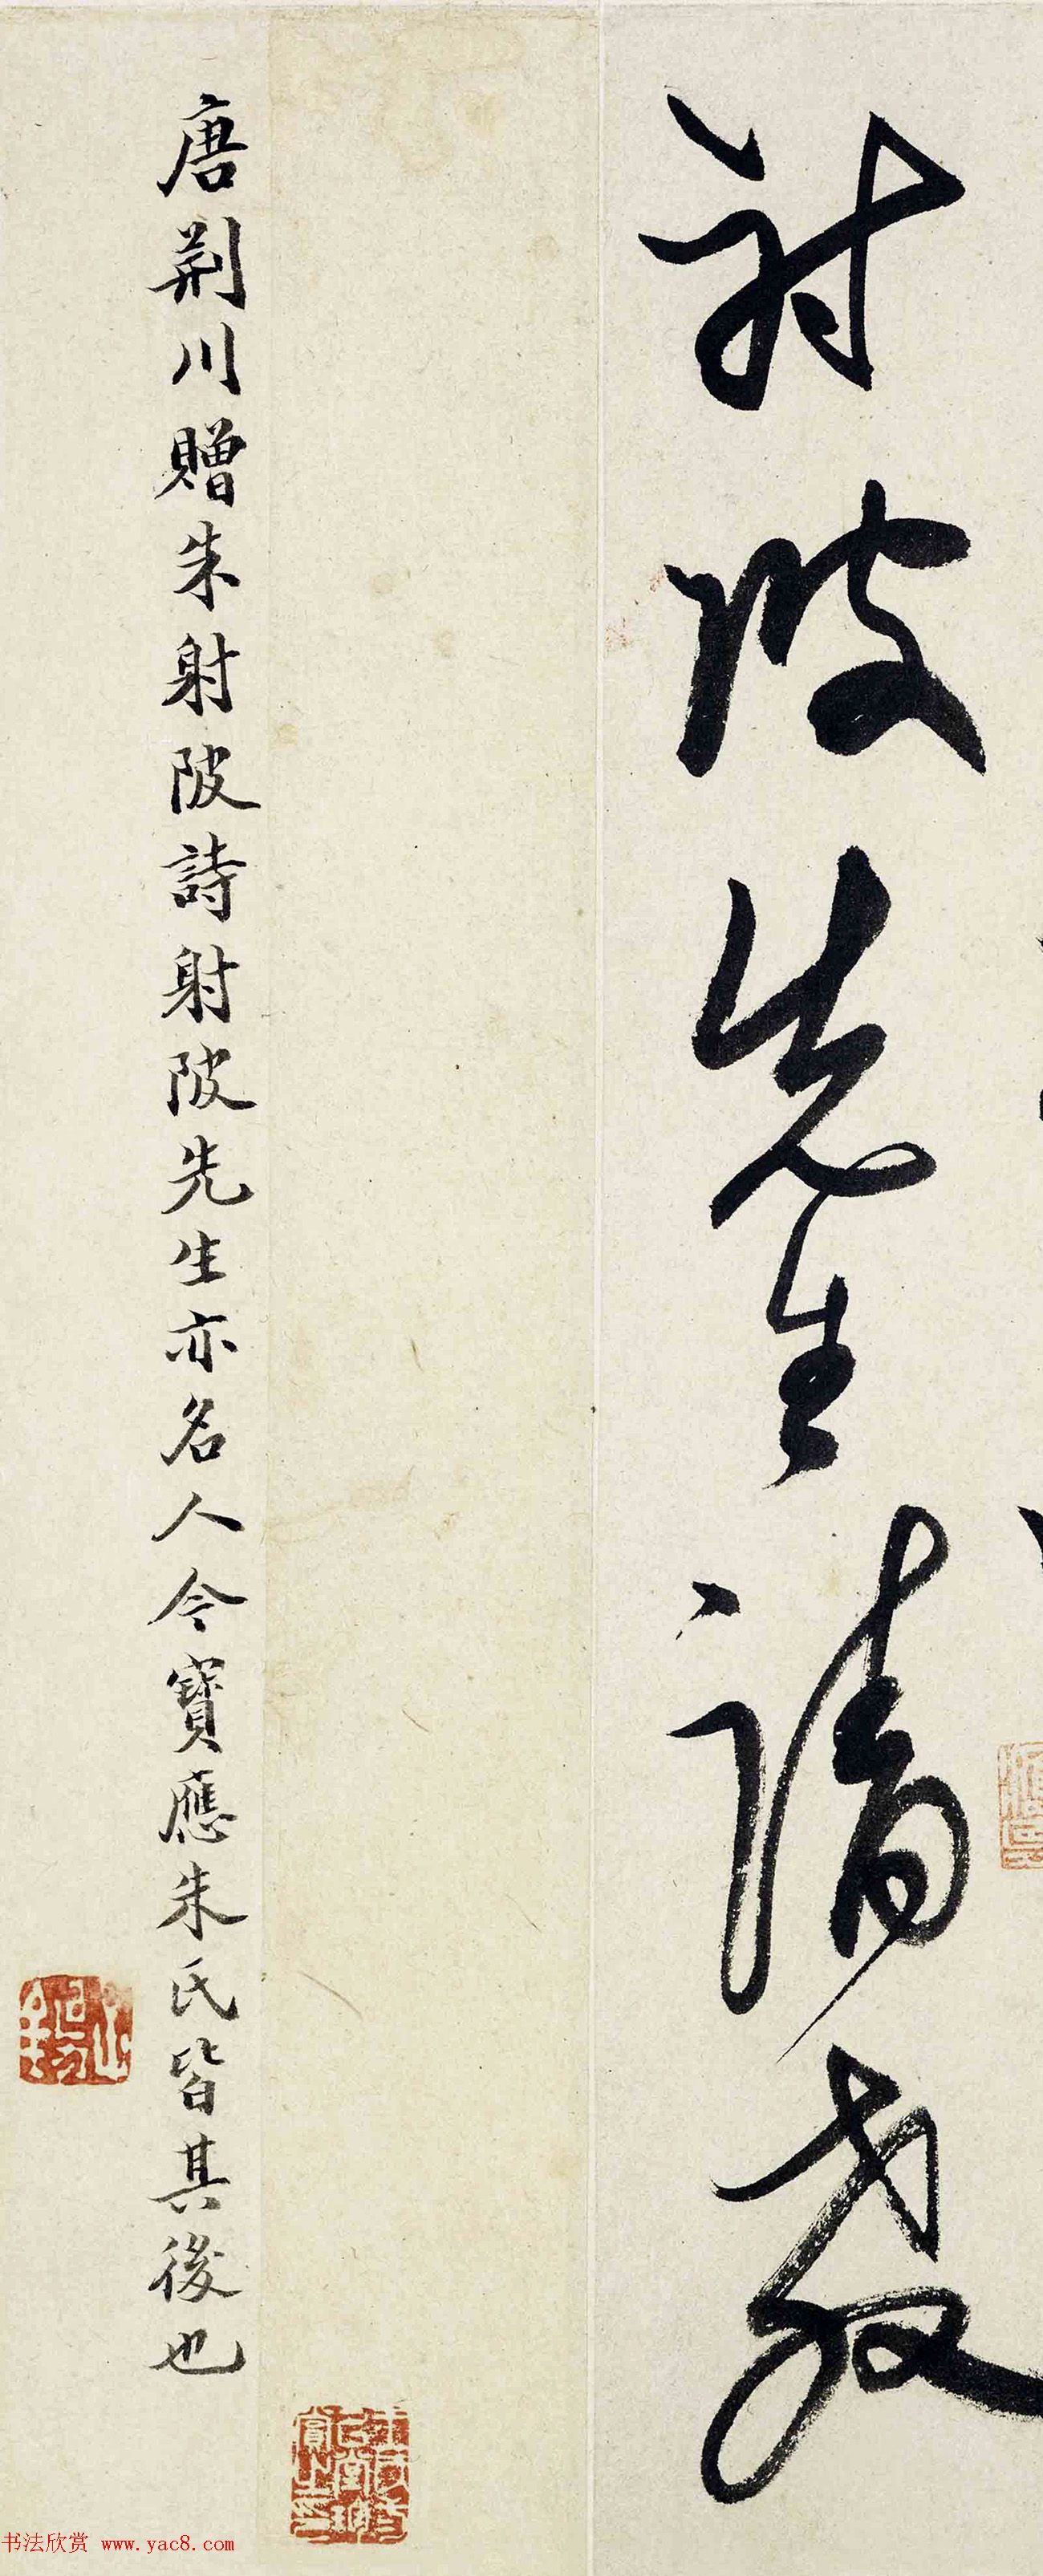 射陂先生请教
唐荆川贈朱射陂詩射陂先生亦名人今寶應朱氏皆其後也
书法欣赏 www.yac8.com